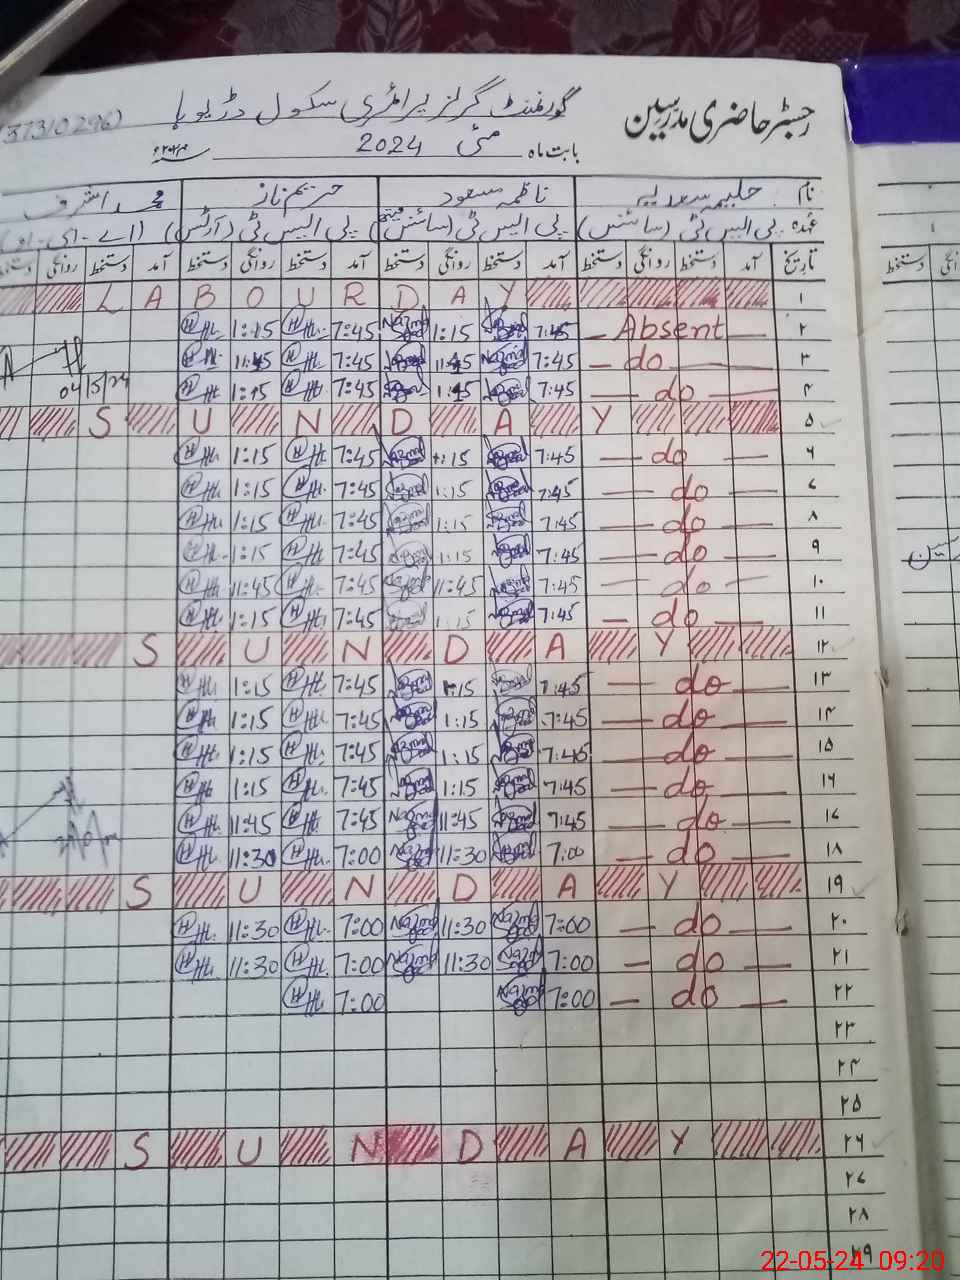 رجسٹر حاضری مدرسین گورنمنٹ گرلز پرائمری سکول دڑیوہا
37310296
بابت ماہ مئی 2024
نام حلیمہ سعدیہ ناظمہ مسعود حریم ناز محمد اشرف
عہدہ پی ایس ٹی (سائنس) پی ایس ٹی (سائنس) پی ایس ٹی (آرٹس)
تاریخ آمد دستخط روانگی دستخط آمد دستخط روانگی دستخط آمد دستخط روانگی دستخط آمد دستخط روانگی دستخط
۱ L A B O U R D A Y
۲ — Absent — 7:45 1:15 7:45 1:15
۳ — do — 7:45 11:45 7:45 11:45
۴ — do — 7:45 1:15 7:45 1:15
04/5/24
۵ S U N D A Y
۶ — do — 7:45 1:15 7:45 1:15
۷ — do — 7:45 1:15 7:45 1:15
۸ — do — 7:45 1:15 7:45 1:15
۹ — do — 7:45 1:15 7:45 1:15
۱۰ — do — 7:45 11:45 7:45 11:45
۱۱ — do — 7:45 1:15 7:45 1:15
۱۲ S U N D A Y
۱۳ — do — 7:45 1:15 7:45 1:15
۱۴ — do — 7:45 1:15 7:45 1:15
۱۵ — do — 7:45 1:15 7:45 1:15
۱۶ — do — 7:45 1:15 7:45 1:15
۱۷ — do — 7:45 11:45 7:45 11:45
۱۸ — do — 7:00 11:30 7:00 11:30
۱۹ S U N D A Y
۲۰ — do — 7:00 11:30 7:00 11:30
۲۱ — do — 7:00 11:30 7:00 11:30
۲۲ — do — 7:00 7:00
۲۳
۲۴
۲۵
۲۶ S U N D A Y
۲۷
۲۸
۲۹
22-05-24 09:20